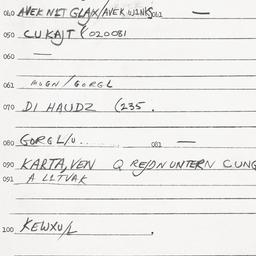 040 AVEK NKT GLAJX/AVEK WINKS 061 —
050 CUKAJT (020081
060 —
061 / GORGL
070 DI HAUDZ (235 .
080 GORGL/U.. 081 —
090 KARTA, VEN Q UNTERN CUNG
091 A LLTVAK
100 KEWXU/L .